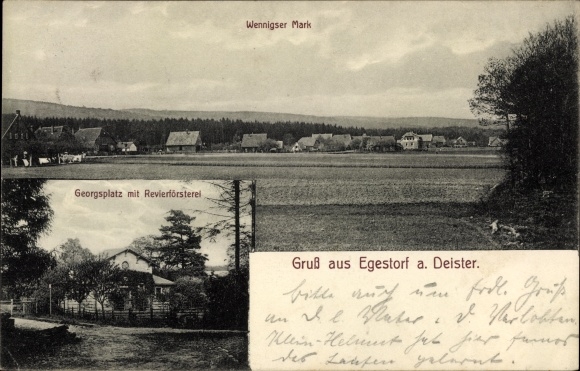 Wennigser Mark
Georgsplatz mit Revierförsterei
Gruß aus Egestorf a. Deister.
bitte auch um frdl. Grüße
an d. l. Vater. d. Verlobten.
Klein-Helmut hat hier famos
das Laufen gelernt.